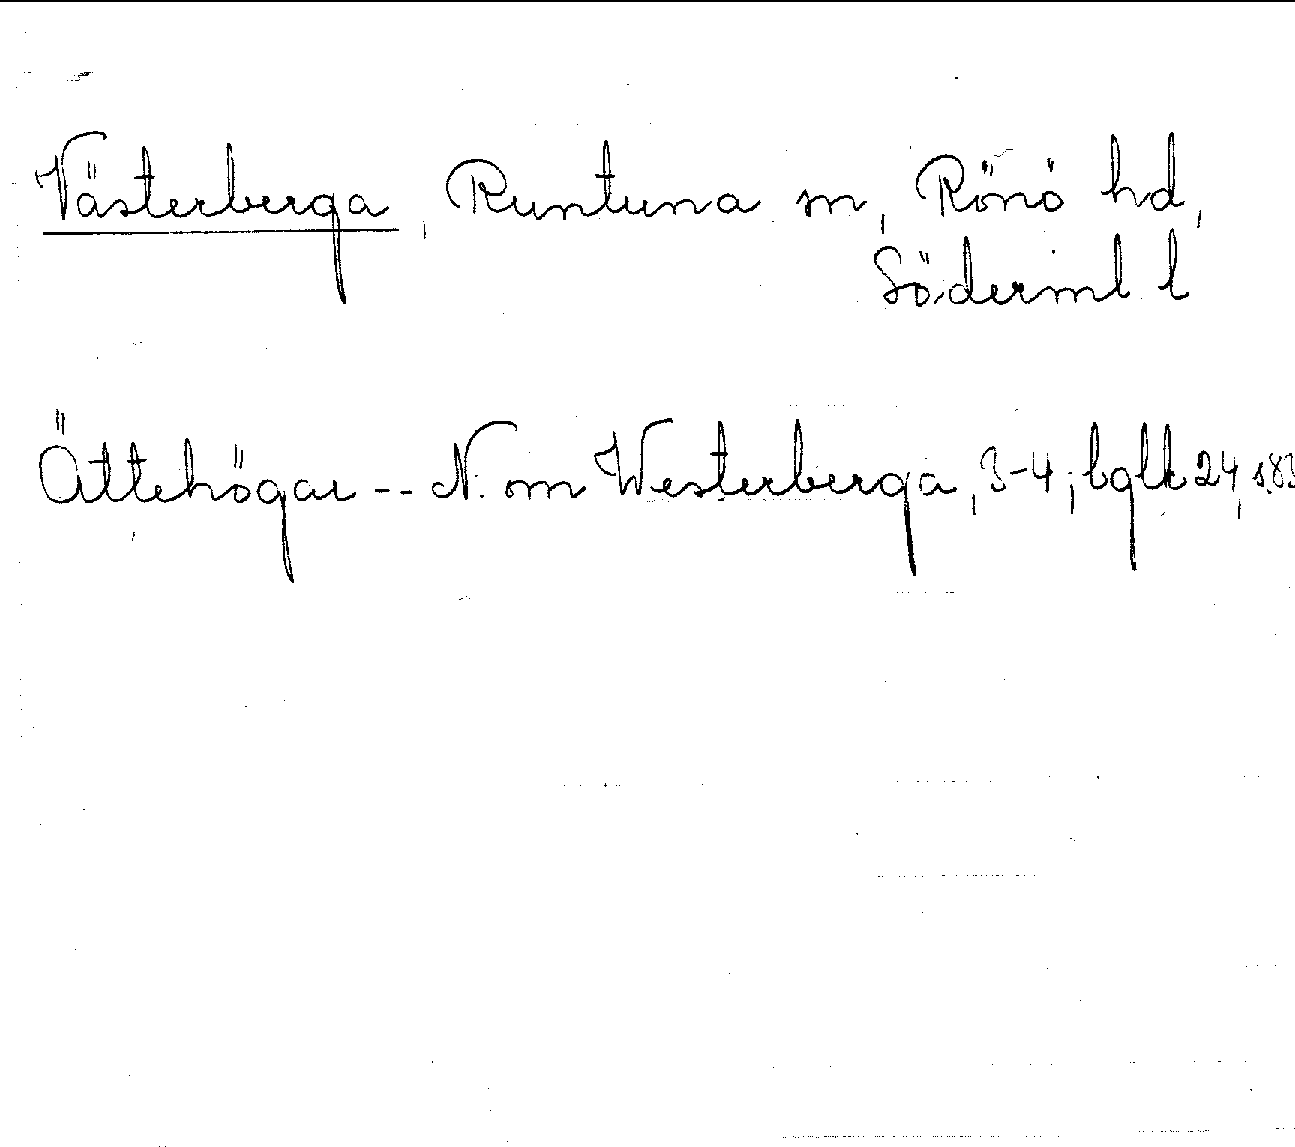 Västerberga, Runtuna sn, Rönö hd,
Söderml l
Ättehögar -- N. om Westerberga, 3-4; bglk 24, s.83